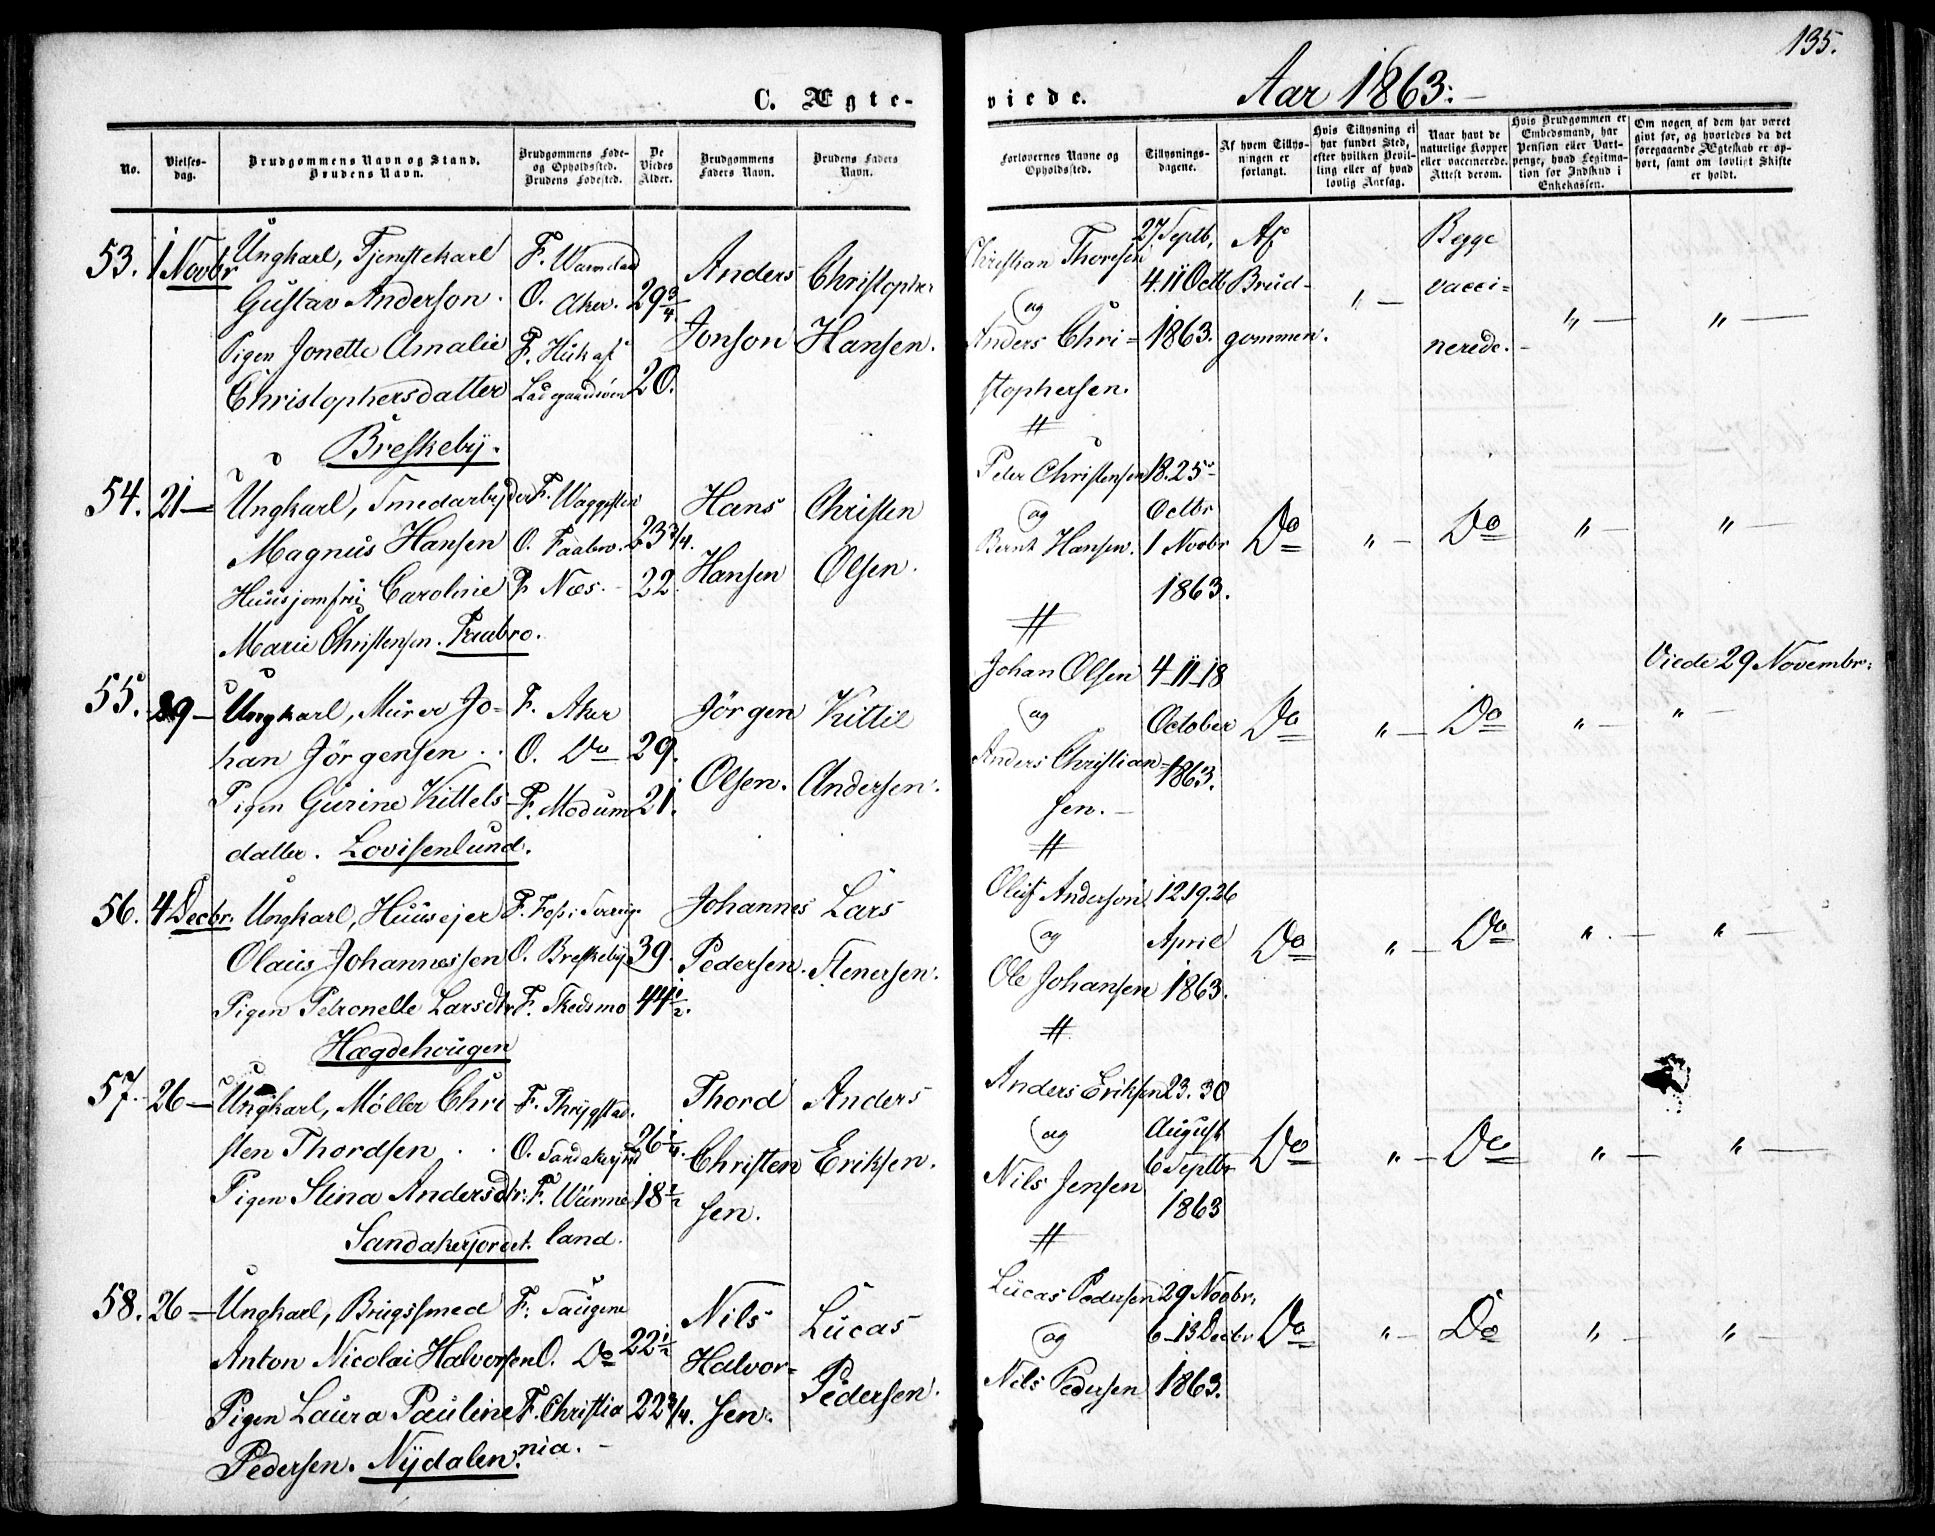 135.
C. Ægteviede. Aar 1863.
No.
Vielsesdag.
Brudgommens Navn og Stand.
Brudens Navn.
Brudgommens Føde-
og Opholdssted.
Brudens Fødested.
De
Viedes
Alder.
Brudgommens
Faders Navn.
Brudens Faders
Navn.
Forlovernes Navne og
Opholdssted.
Tillysnings-
dagene.
Af hvem Tillys-
ningen er
forlangt.
Hvis Tillysning ei
har fundet Sted,
efter hvilken Bevil-
ling eller af hvad
lovlig Aarsag.
Naar havt de
naturlige Kopper
eller vaccinerede.
Attest derom.
Hvis Brudgommen er
Embedsmand, har
Pension eller Vart-
penge, hvad Legitima-
tion for Indskud i
Enkekassen.
Om nogen af dem har været
gift før, og hvorledes da det
foregaaende Ægteskab er op-
hørt, samt om lovligt Skifte
er holdt.
53. 1 Novbr
Ungkarl, Tjenstekarl
Gustav Anderson.
Pigen Jonette Amalie
Christophersdatter
Breskeby.
F.
O. Aker.
F. Huk af
29 3/4
20.
Anders
Jonson
Christopher
Hansen.
Christian Thoresen
og
Anders Chri-
stophersen.
27 Septb,
4.11 Octb
1863.
Af
Brud-
gommen.
" —
Begge
vacci-
nerede. -
" —
" —
54. 21 —
Ungkarl, Smedarbejder
Magnus Hansen
Huusjomfru Caroline
Marie Christensen. Faabro.
F.
O. Faabro.
F. Næs.
23 3/4.
22.
Hans
Hansen
Christen
Olsen.
Peder Christensen
og
Bernt Hansen.
18. 25
Octbr
1 Novbr
1863.
Do
" —
Do
" —
" —
55. 29 —
Ungkarl, Murer Jo-
han Jörgensen . .
Pigen Gurine Kittels-
datter. Lovisenlund.
F. Aker
O. Do
F. Modum
29.
21.
Jörgen
Olsen.
Kittil
Andersen.
Johan Olsen
og
Anders Christian-
sen. —
4-11-18
October
1863.
Do
" —
Do
" —
Viede 29 Novembr.
" —
56. 4 Decbr.
Ungkarl, Huusejer
Olaus Johannessen
Pigen Petronelle Larsdtr
Hægdehougen
F.
O. Breskeby
F. Skedsmo
39.
44 1/2.
Johannes
Pedersen.
Lars
Stenersen.
Oluf Anderson
og
Ole Johansen
12 19. 26
April
1863.
Do
" —
Do
" . —
" —
57. 26 —
Ungkarl, Möller Chri
sten Thordsen . .
Pigen Stina Andersdtr.
Sandakerjordet.
F. Thrygstad.
O. Sandakerjord
F. Wärme
land.
26 1/4.
18 1/2
Thord
Christen
sen.
Anders
Eriksen.
Anders Eriksen
og
Nils Jensen
23. 30
August
6 Septbr
1863
Do
" —
Do
" —
" —
58. 26 —
Ungkarl, Brugssmed
Anton Nicolai Halvorsen
Pigen Laura Pauline
Pedersen. Nydalen.
F. Saugene
O. Do
F. Christia
nia. —
22 1/2
22 3/4.
Nils
Halvor-
sen.
Lucas
Pedersen.
Lucas Pedersen
og
Nils Pedersen
29 Novbr,
6-13 Decbr
1863.
Do
" —
Do
" —
" —